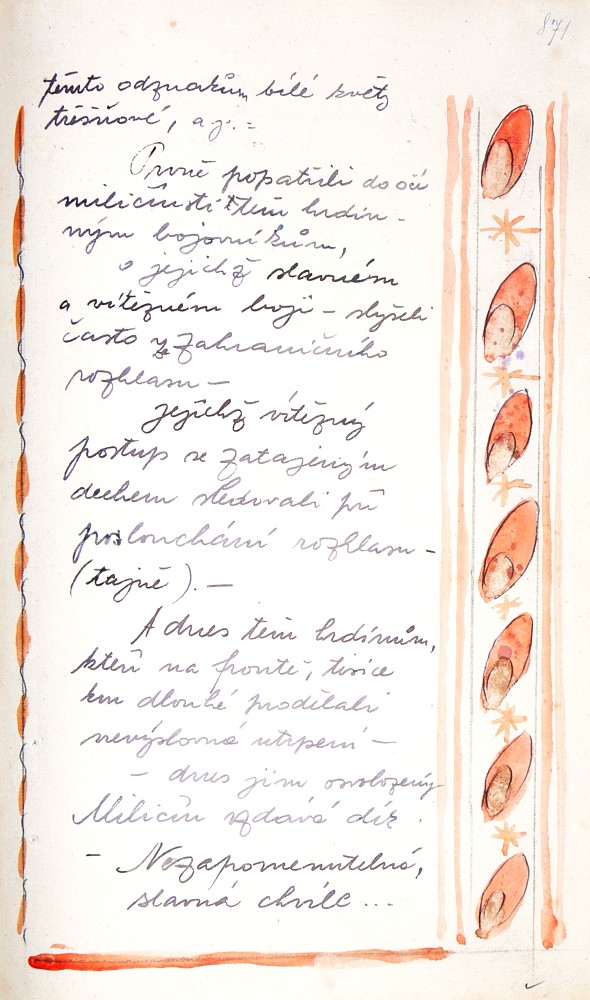 871
těmto odznakům bílé květy
třešňové, a j. =
Prvně popatřili do očí
miličínští těm hrdin-
ným bojovníkům,
o jejichž slavném
a vítězném boji – slyšeli
často ze zahraničního
rozhlasu –
jejichž vítězný
postup se zatajeným
dechem sledovali při
poslouchání rozhlasu –
(tajně). —
A dnes těm hrdinům,
kteří na frontě, tisíce
km dlouhé prodělali
nevýslovná utrpení –
– dnes jim osvobozený
Miličín vzdává dík.
– Nezapomenutelná,
slavná chvíle ...